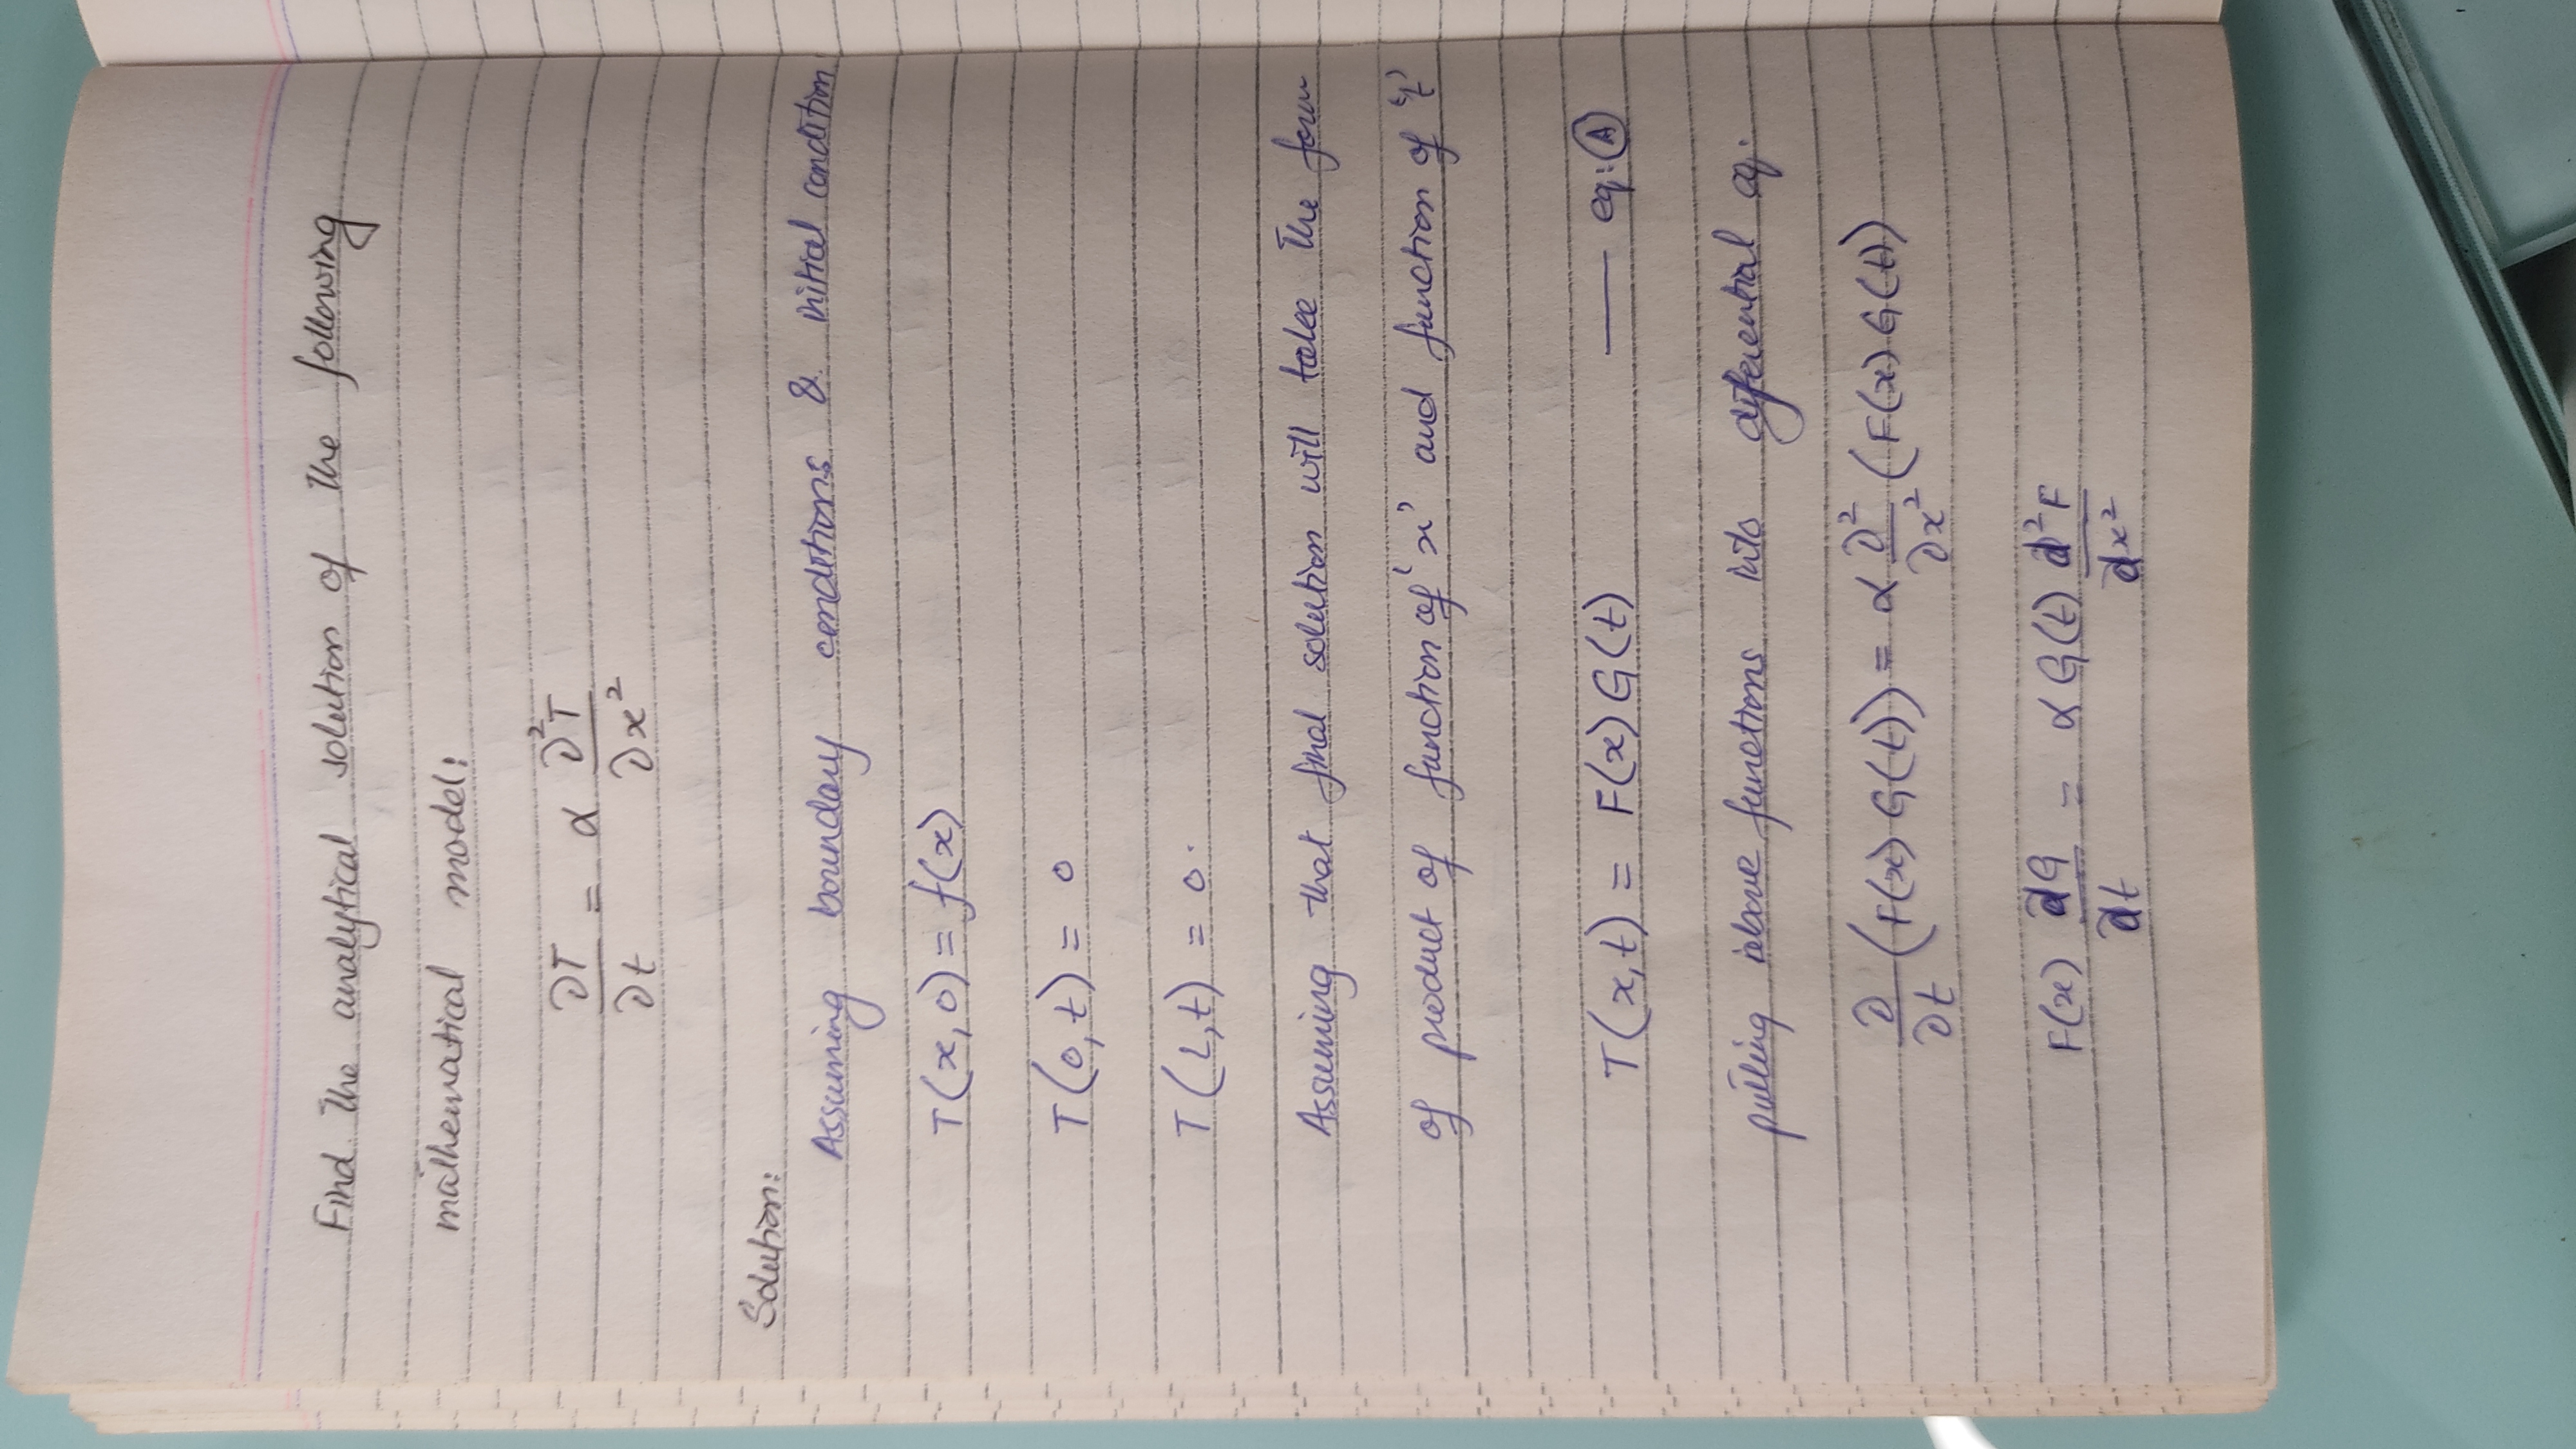 Find the analytical solution of the following
mathematical model:
∂T/∂t = α ∂²T/∂x²
Solution:
Assuming boundary conditions & initial condition
T(x,0) = f(x)
T(0,t) = 0
T(L,t) = 0.
Assuming that final solution will take the form
of product of function of 'x' and function of 't'
T(x,t) = F(x) G(t) —— eq: Ⓐ
putting above functions into differential eq.
∂/∂t (F(x) G(t)) = α ∂²/∂x² (F(x) G(t))
F(x) dG/dt = α G(t) d²F/dx²